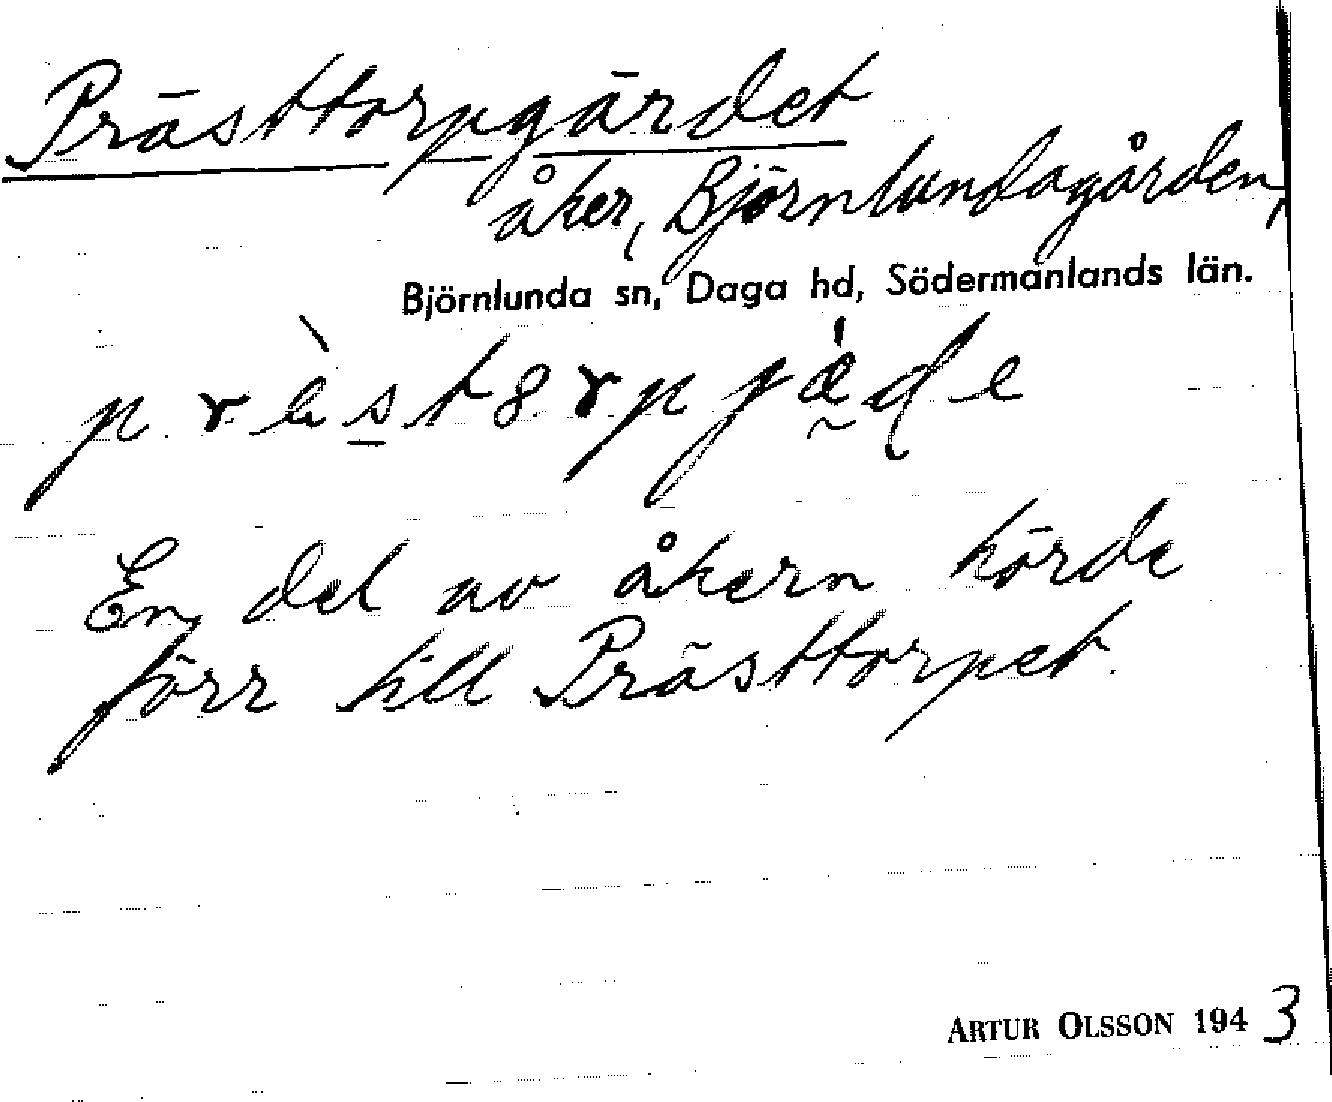 Prästtorpgärdet
åker, Björnlundagården,
Björnlunda sn, Daga hd, Södermanlands län.
En del av åkern hörde
förr till Prästtorpet.
ARTUR OLSSON 1943